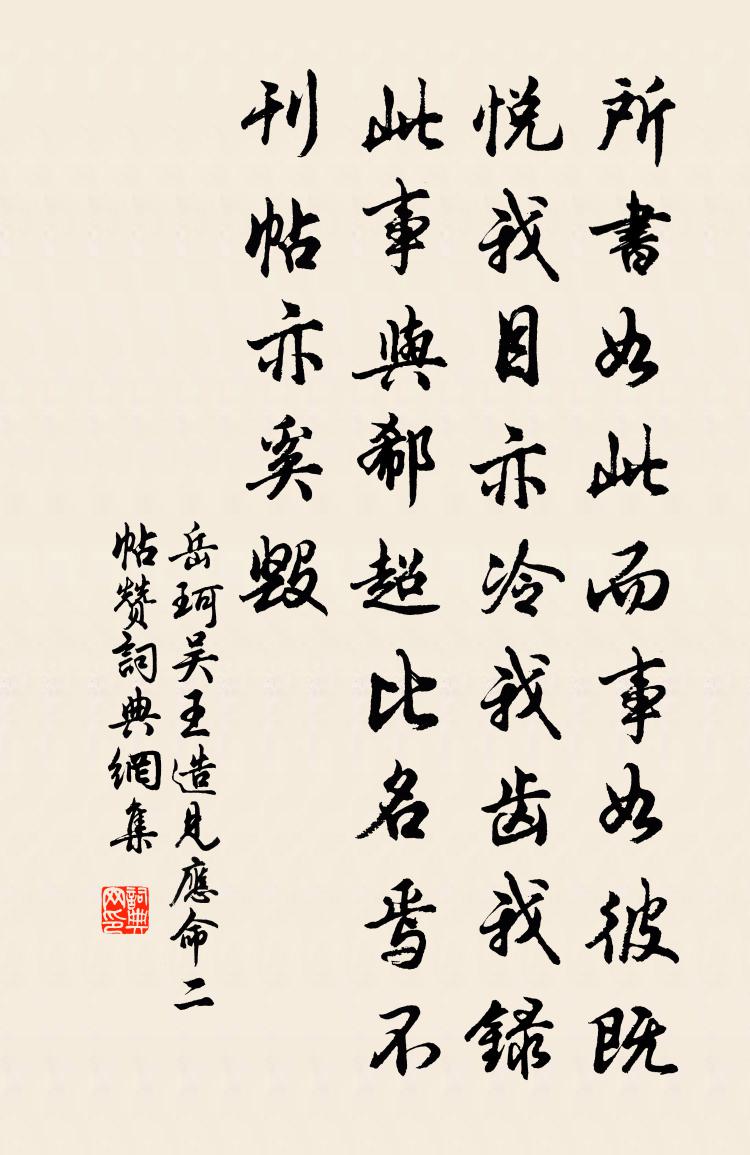 所書如此而事如彼既
悦我目亦冷我齿我録
此事與郗超比名焉不
刊帖亦奚毀
岳珂吴王造見應命二
帖赞詞典網集
詞典
网印